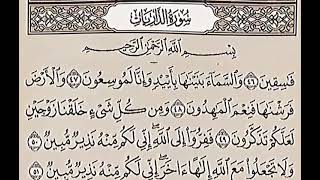 سُورَةُ الذَّارِيَاتِ
بِسْمِ اللَّهِ الرَّحْمَٰنِ الرَّحِيمِ
فَٰسِقِينَ ٤٦ وَالسَّمَاءَ بَنَيْنَٰهَا بِأَيْيْدٍ وَإِنَّا لَمُوسِعُونَ ٤٧ وَالْأَرْضَ
فَرَشْنَٰهَا فَنِعْمَ الْمَٰهِدُونَ ٤٨ وَمِن كُلِّ شَيْءٍ خَلَقْنَا زَوْجَيْنِ
لَعَلَّكُمْ تَذَكَّرُونَ ٤٩ فَفِرُّوا إِلَى اللَّهِ إِنِّي لَكُم مِّنْهُ نَذِيرٌ مُّبِينٌ ٥٠
وَلَا تَجْعَلُوا مَعَ اللَّهِ إِلَٰهًا ءَاخَرَ إِنِّي لَكُم مِّنْهُ نَذِيرٌ مُّبِينٌ ٥١